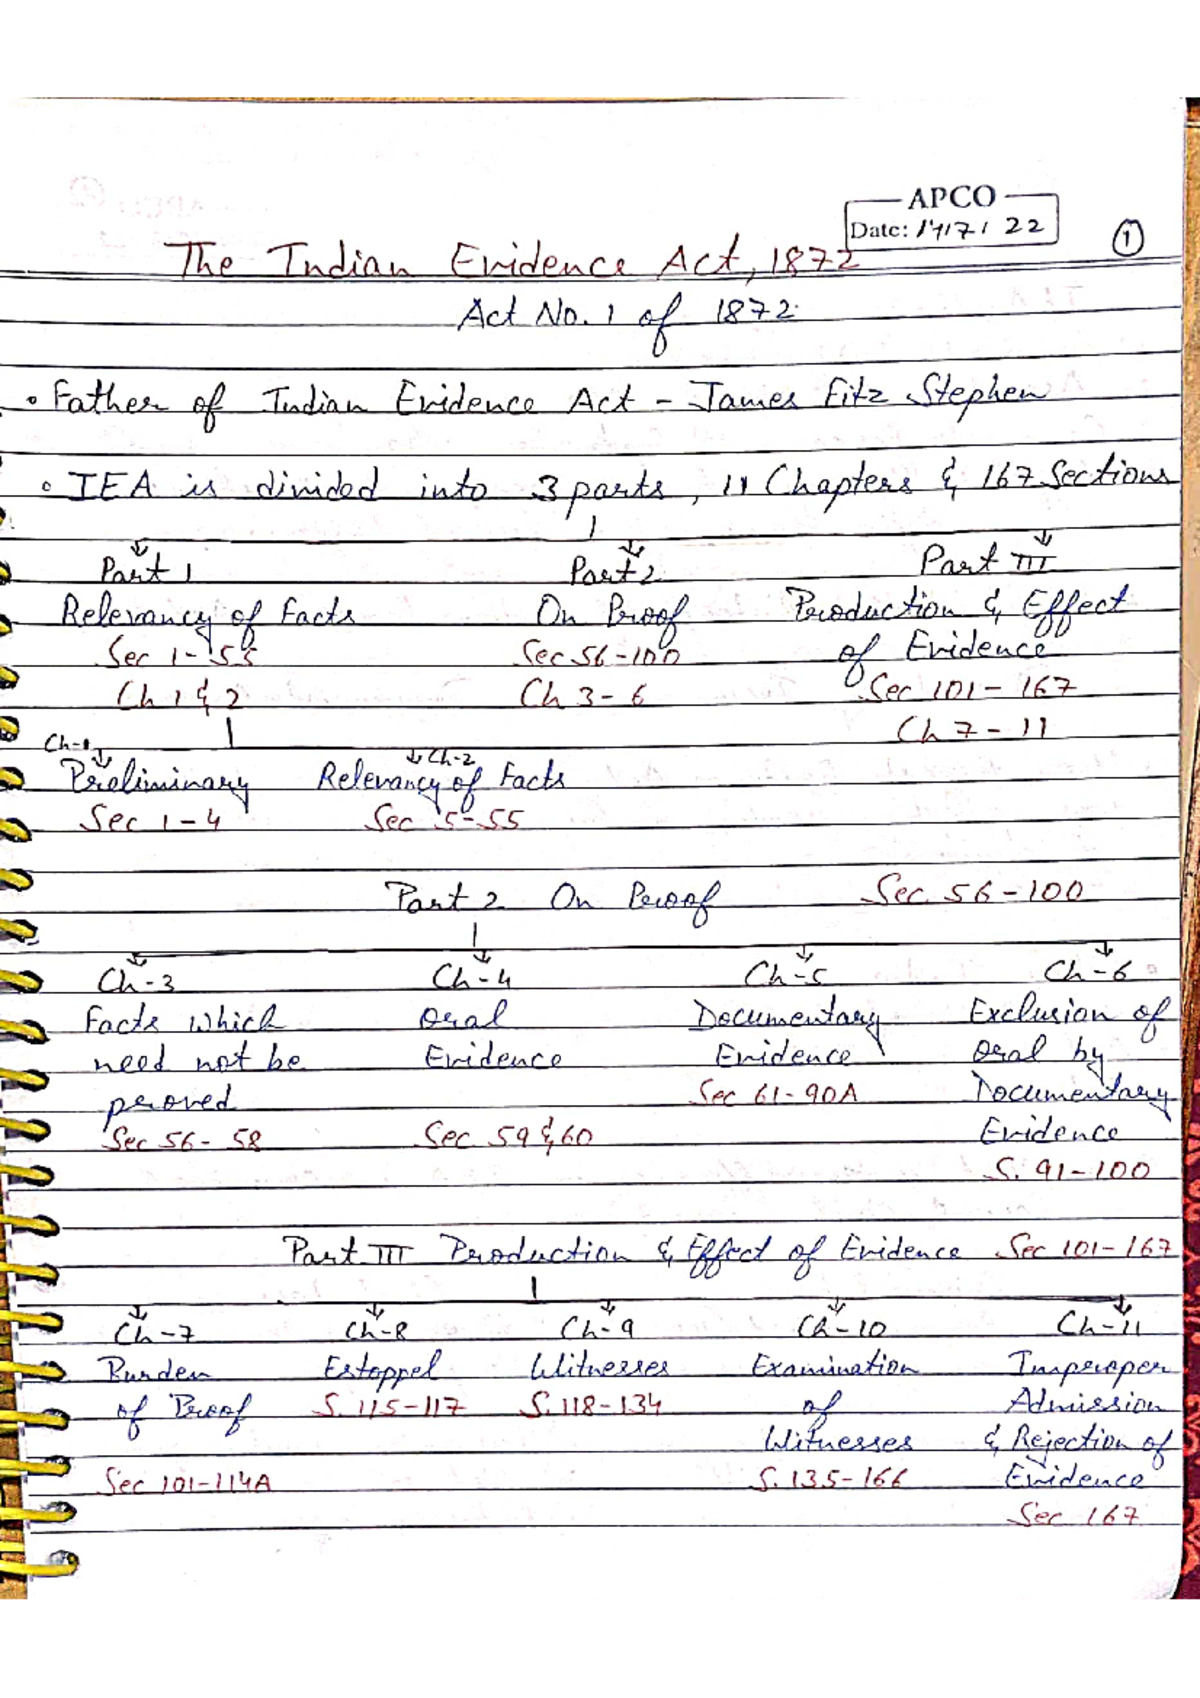 APCO
Date: 17/7/22
1
The Indian Evidence Act, 1872
Act No. 1 of 1872
• Father of Indian Evidence Act - James Fitz Stephen
• IEA is divided into 3 parts, 11 Chapters & 167 Sections
Part 1 Part 2 Part III
Relevancy of Facts On Proof Production & Effect
Sec 1-55 Sec 56-100 of Evidence
Ch 1 & 2 Ch 3-6 Sec 101-167
Ch 7-11
Ch-1 Ch-2
Preliminary Relevancy of Facts
Sec 1-4 Sec 5-55
Part 2 On Proof Sec. 56-100
Ch-3 Ch-4 Ch-5 Ch-6
Facts which Oral Documentary Exclusion of
need not be Evidence Evidence oral by
proved Sec 61-90A Documentary
Sec 56-58 Sec 59 & 60 Evidence
S. 91-100
Part III Production & Effect of Evidence Sec 101-167
Ch-7 Ch-8 Ch-9 Ch-10 Ch-11
Burden Estoppel Witnesses Examination Improper
of Proof S. 115-117 S. 118-134 of Admission
Witnesses & Rejection of
Sec 101-114A S. 135-166 Evidence
Sec 167